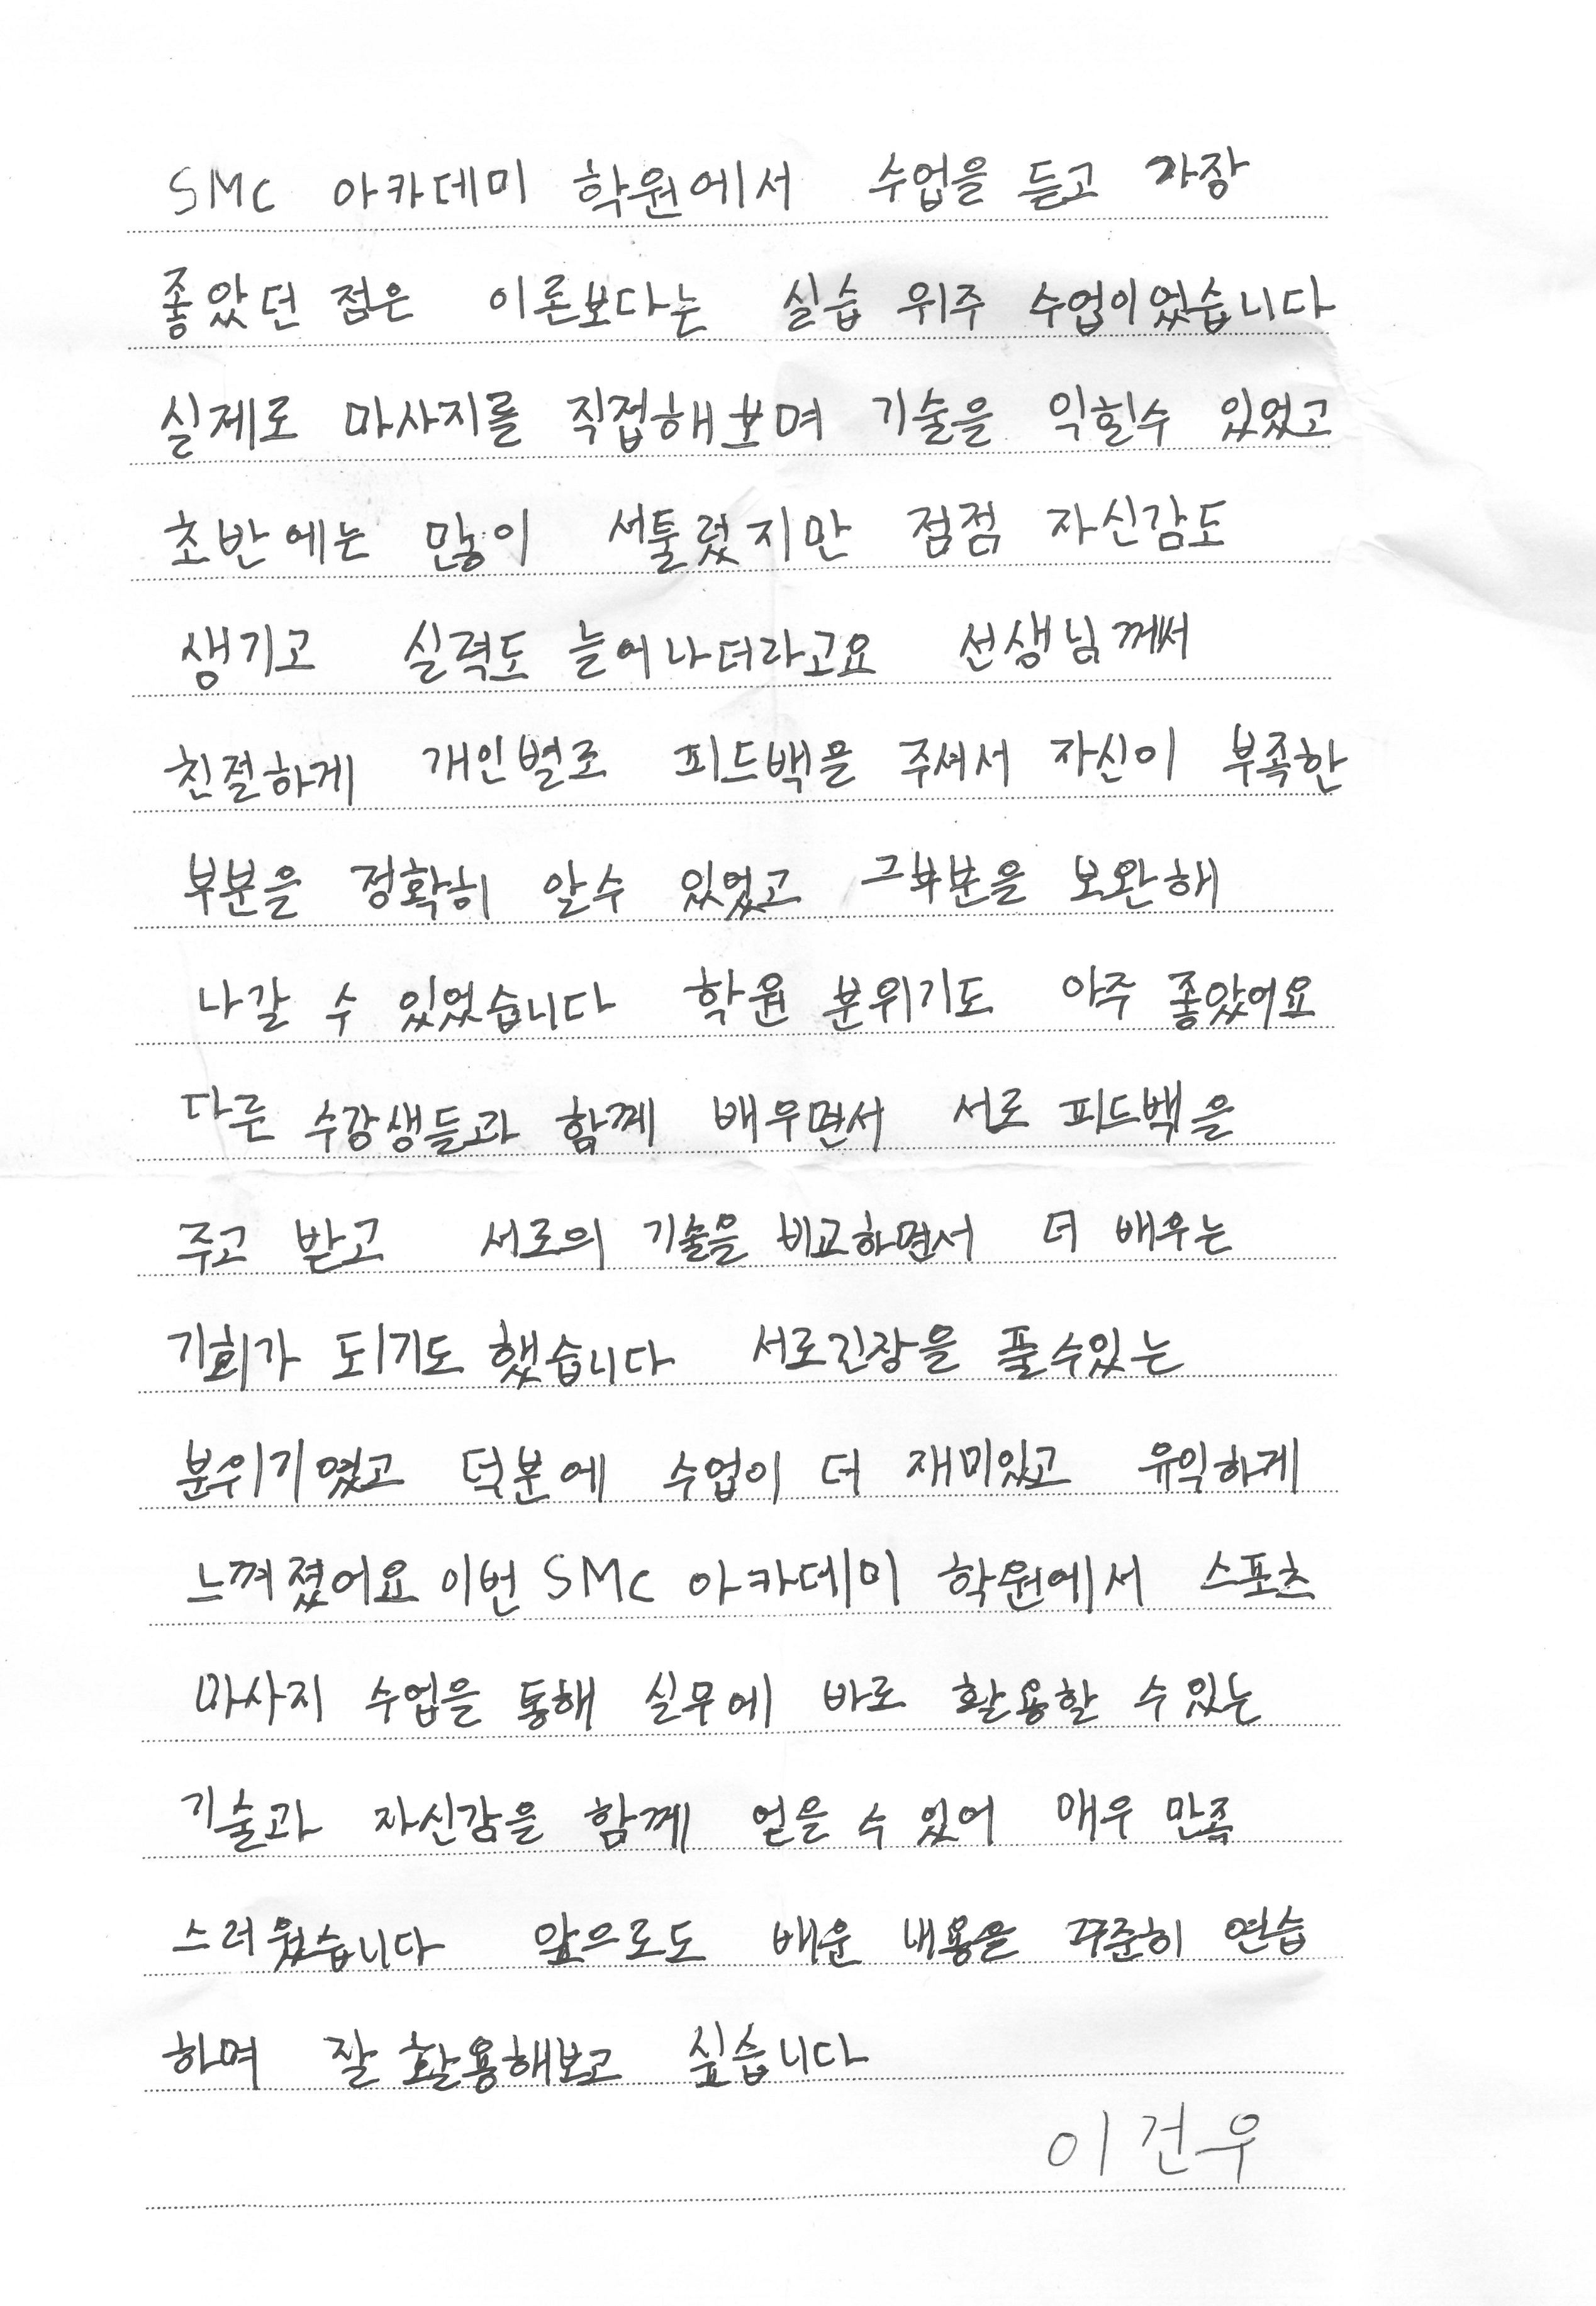 SMC 아카데미 학원에서 수업을 듣고 가장
좋았던 점은 이론보다는 실습 위주 수업이었습니다
실제로 마사지를 직접해보며 기술을 익힐수 있었고
초반에는 많이 서툴렀지만 점점 자신감도
생기고 실력도 늘어나더라고요 선생님께서
친절하게 개인별로 피드백을 주셔서 자신이 부족한
부분을 정확히 알수 있었고 그부분을 보완해
나갈 수 있었습니다 학원 분위기도 아주 좋았어요
다른 수강생들과 함께 배우면서 서로 피드백을
주고 받고 서로의 기술을 비교하면서 더 배우는
기회가 되기도 했습니다 서로긴장을 풀수있는
분위기였고 덕분에 수업이 더 재미있고 유익하게
느껴졌어요 이번 SMC 아카데미 학원에서 스포츠
마사지 수업을 통해 실무에 바로 활용할 수있는
기술과 자신감을 함께 얻을 수 있어 매우 만족
스러웠습니다 앞으로도 배운 내용을 꾸준히 연습
하며 잘 활용해보고 싶습니다
이건우